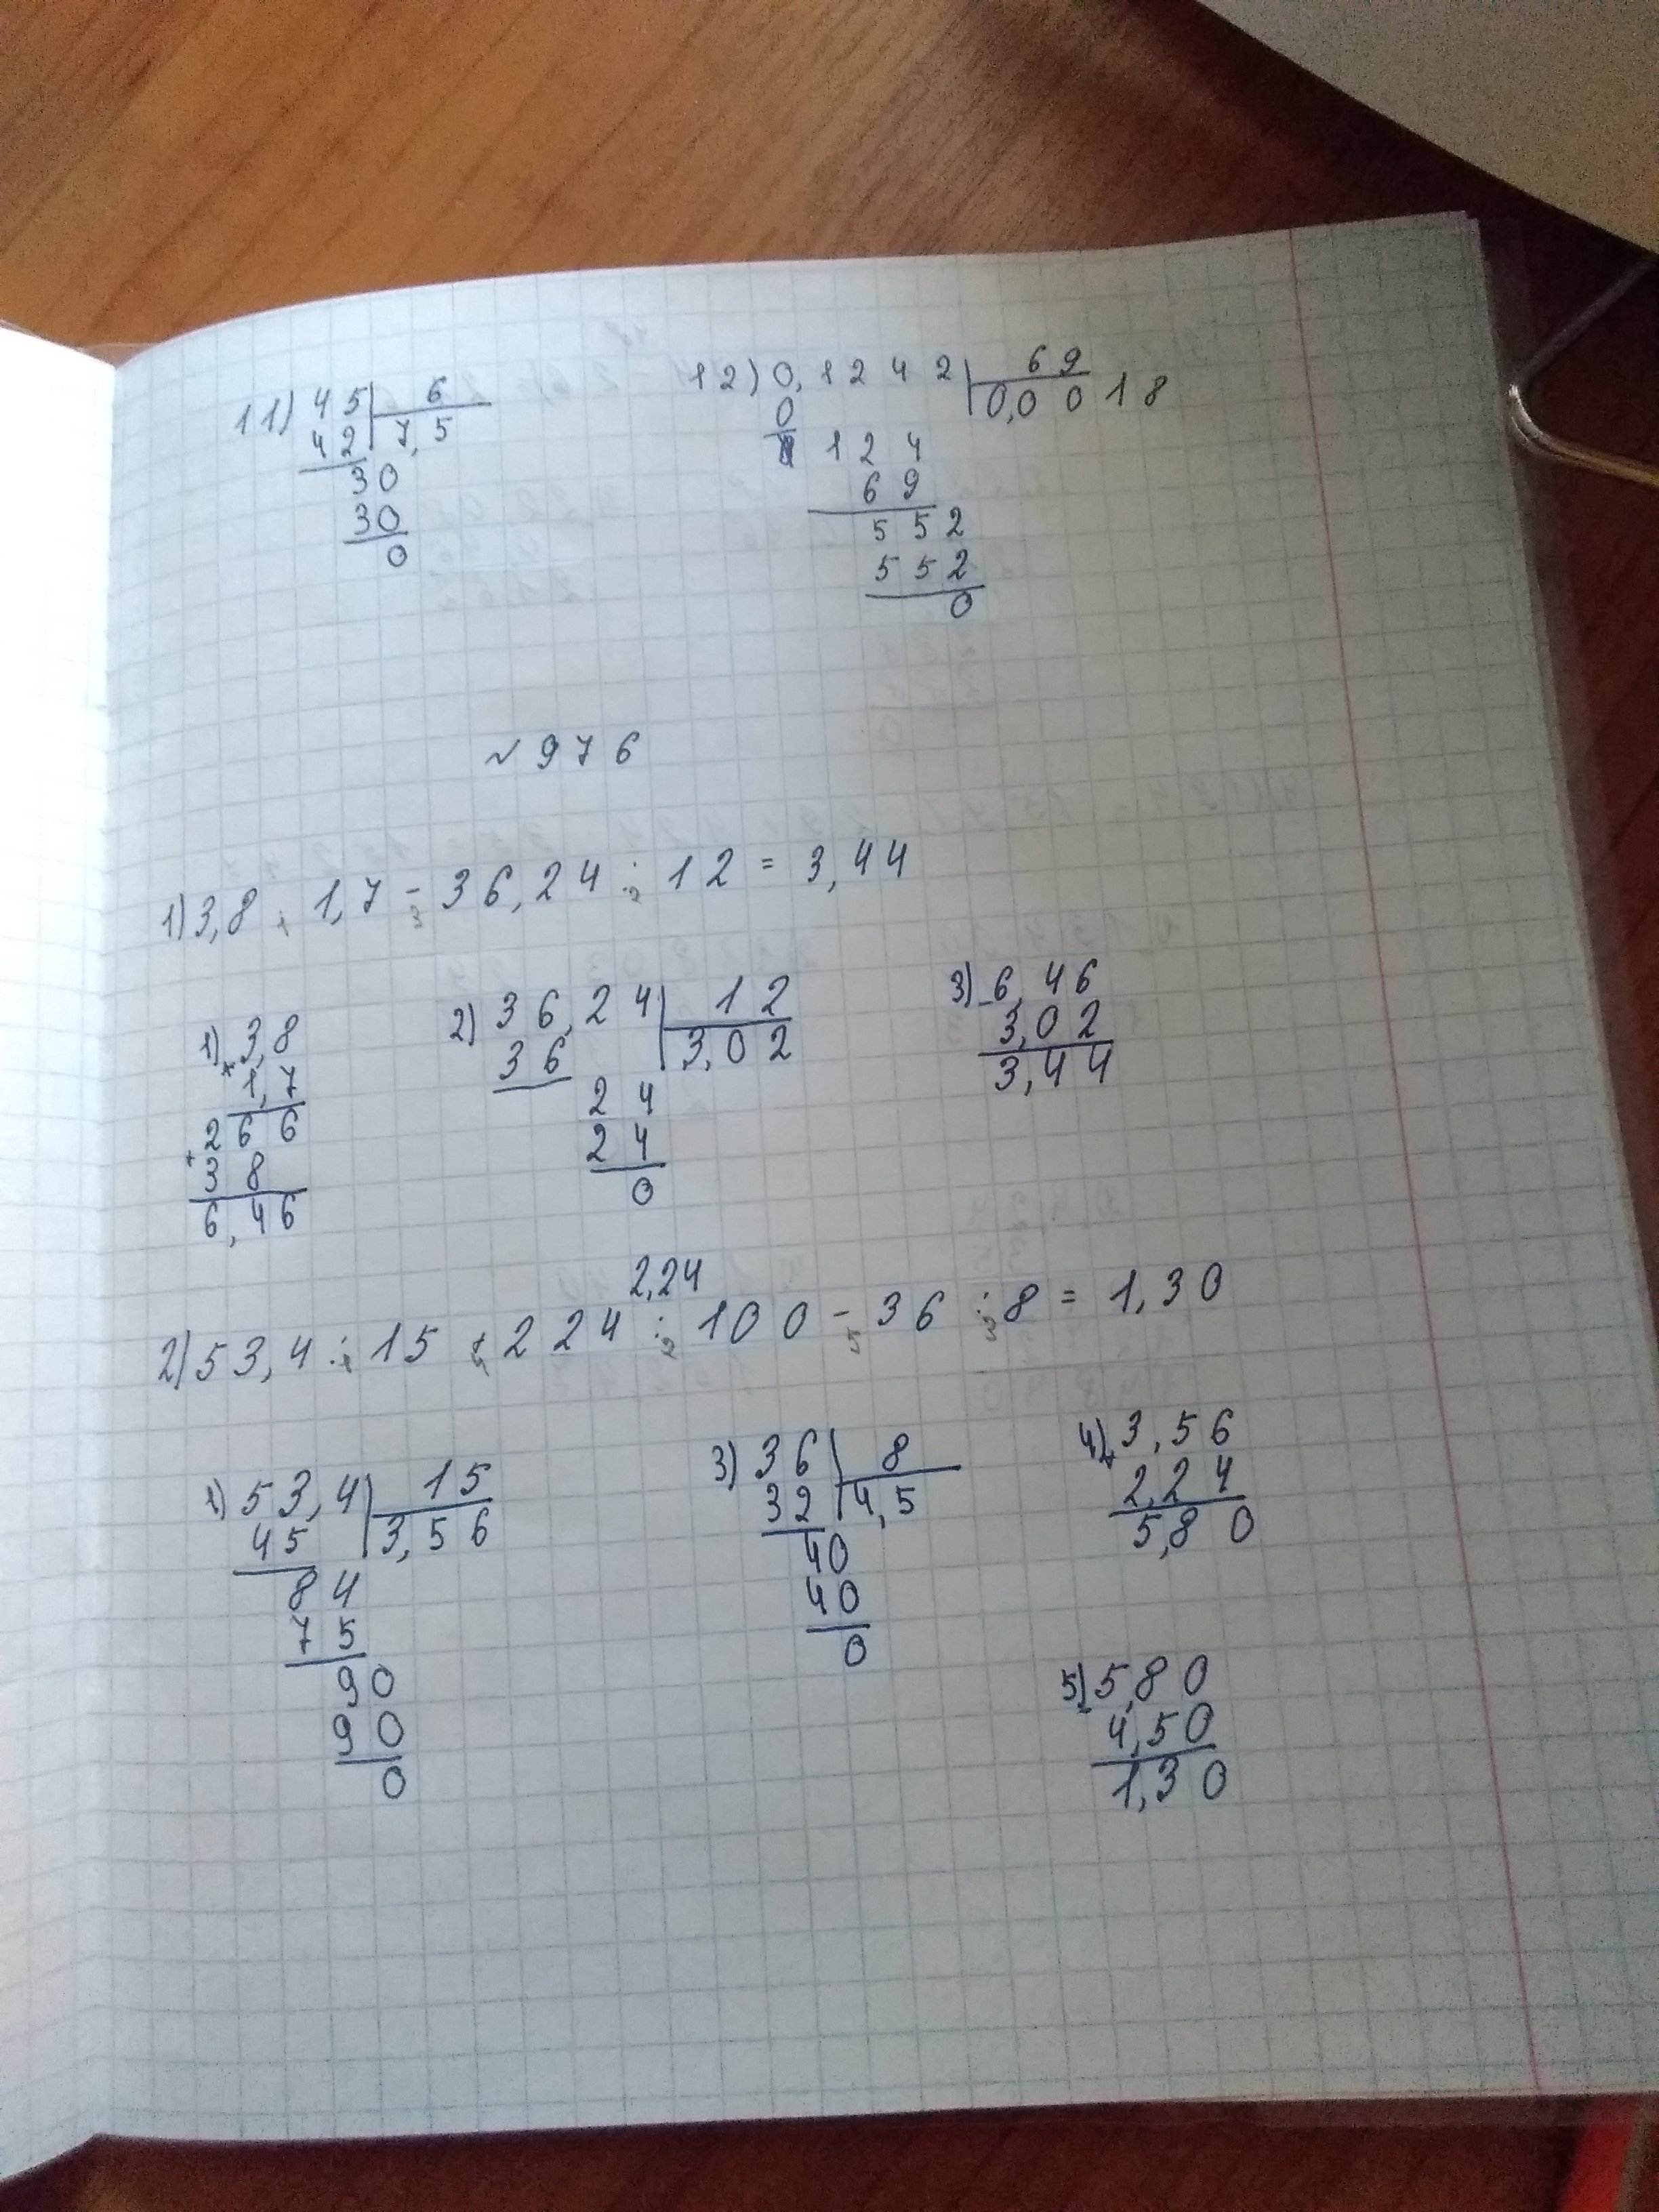 11) 45 | 6
42 | 7,5
30
30
0
12) 0,1242 | 69
0 | 0,0018
124
69
552
552
0
№976
1) 3,8 · 1,7 - 36,24 : 12 = 3,44
1) 3,8
× 1,7
266
+ 38
6,46
2) 36,24 | 12
36 | 3,02
24
24
0
3) - 6,46
3,02
3,44
2,24
2) 53,4 : 15 + 224 : 100 - 36 : 8 = 1,30
1) 53,4 | 15
45 | 3,56
84
75
90
90
0
3) 36 | 8
32 | 4,5
40
40
0
4) + 3,56
2,24
5,80
5) - 5,80
4,50
1,30